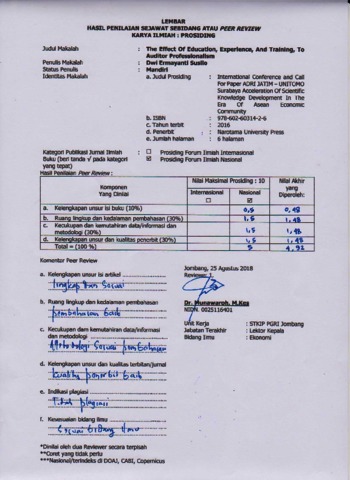 LEMBAR
HASIL PENILAIAN SEJAWAT SEBIDANG ATAU PEER REVIEW
KARYA ILMIAH : PROSIDING
Judul Makalah : The Effect Of Education, Experience, And Training, To
Auditor Professionalism
Penulis Makalah : Dwi Ermayanti Susilo
Status Penulis : Mandiri
Identitas Makalah : a. Judul Prosiding : International Conference and Call
For Paper ADRI JATIM – UNITOMO
Surabaya Acceleration Of Scientific
Knowledge Development In The
Era Of Asean Economic
Community
b. ISBN : 978-602-60314-2-6
c. Tahun terbit : 2016
d. Penerbit : Narotama University Press
e. Jumlah halaman : 6 halaman
Kategori Publikasi Jurnal Ilmiah : ☐ Prosiding Forum Ilmiah Internasional
Buku (beri tanda √ pada kategori ☑ Prosiding Forum Ilmiah Nasional
yang tepat)
Hasil Penilaian Peer Review :
Komponen Yang Dinilai
Nilai Maksimal Prosiding : 10
Internasional ☐
Nasional ☑
Nilai Akhir yang Diperoleh:
a. Kelengkapan unsur isi buku (10%) 0,5 0,48
b. Ruang lingkup dan kedalaman pembahasan (30%) 1,5 1,48
c. Kecukupan dan kemutahiran data/informasi dan
metodologi (30%) 1,5 1,48
d. Kelengkapan unsur dan kualitas penerbit (30%) 1,5 1,48
Total = (100 %) 5 4,92
Komentar Peer Review
Jombang, 25 Agustus 2018
Reviewer 1,
a. Kelengkapan unsur isi artikel
lengkap dan sesuai
b. Ruang lingkup dan kedalaman pembahasan
pembahasan baik
Dr. Munawaroh, M.Kes
NIDN. 0025116401
c. Kecukupan dam kemutahiran data/informasi
dan metodologi
Metodologi sesuai pembahasan
Unit Kerja : STKIP PGRI Jombang
Jabatan Terakhir : Lektor Kepala
Bidang Ilmu : Ekonomi
d. Kelengkapan unsur dan kualitas terbitan/jurnal
kualitas penerbit baik
e. Indikasi plagiasi
Tidak plagiasi
f. Kesesuaian bidang ilmu
sesuai bidang ilmu
*Dinilai oleh dua Reviewer secara terpisah
**Coret yang tidak perlu
***Nasional/terindeks di DOAJ, CABI, Copernicus